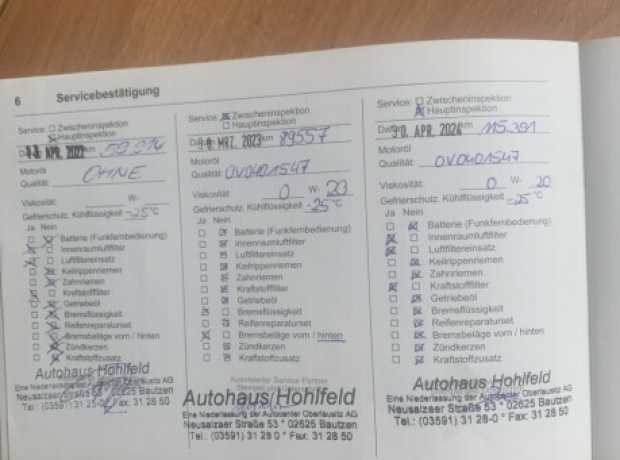 6 Servicebestätigung
Service: Zwischeninspektion
Hauptinspektion
APR. 2022 km 59
Motoröl
Qualität: OHNE
Viskosität: W-
Gefrierschutz, Kühlflüssigkeit -25°C
Ja Nein
Batterie (Funkfernbedienung)
Innenraumluftfilter
Luftfiltereinsatz
Keilrippenriemen
Zahnriemen
Kraftstofffilter
Getriebeöl
Bremsflüssigkeit
Reifenreparaturset
Bremsbeläge vorn / hinten
Zündkerzen
Kraftstoffzusatz
Autohaus Hohlfeld
Eine Niederlassung der Autocenter Oberlausitz AG
Neusalzaer Straße 53 * 02625 Bautzen
Tel.: (03591) 31 28-0 * Fax: 31 28 50
Service: Zwischeninspektion
Hauptinspektion
MRZ. 2023 km 89557
Motoröl
Qualität: OV0401547
Viskosität: 0 W- 20
Gefrierschutz, Kühlflüssigkeit -25°C
Ja Nein
Batterie (Funkfernbedienung)
Innenraumluftfilter
Luftfiltereinsatz
Keilrippenriemen
Zahnriemen
Kraftstofffilter
Getriebeöl
Bremsflüssigkeit
Reifenreparaturset
Bremsbeläge vorn / hinten
Zündkerzen
Kraftstoffzusatz
Autorisierter Service Partner
Autohaus Hohlfeld
Eine Niederlassung der Autocenter Oberlausitz AG
Neusalzaer Straße 53 * 02625 Bautzen
Tel.: (03591) 31 28 0 * Fax: 31 28 50
Service: Zwischeninspektion
Hauptinspektion
APR. 2024 km 115391
Motoröl
Qualität: OV0401547
Viskosität: 0 W- 20
Gefrierschutz, Kühlflüssigkeit -25°C
Ja Nein
Batterie (Funkfernbedienung)
Innenraumluftfilter
Luftfiltereinsatz
Keilrippenriemen
Zahnriemen
Kraftstofffilter
Getriebeöl
Bremsflüssigkeit
Reifenreparaturset
Bremsbeläge vorn / hinten
Zündkerzen
Kraftstoffzusatz
Autohaus Hohlfeld
Eine Niederlassung der Autocenter Oberlausitz AG
Neusalzaer Straße 53 * 02625 Bautzen
Tel.: (03591) 31 28-0 * Fax: 31 28 50